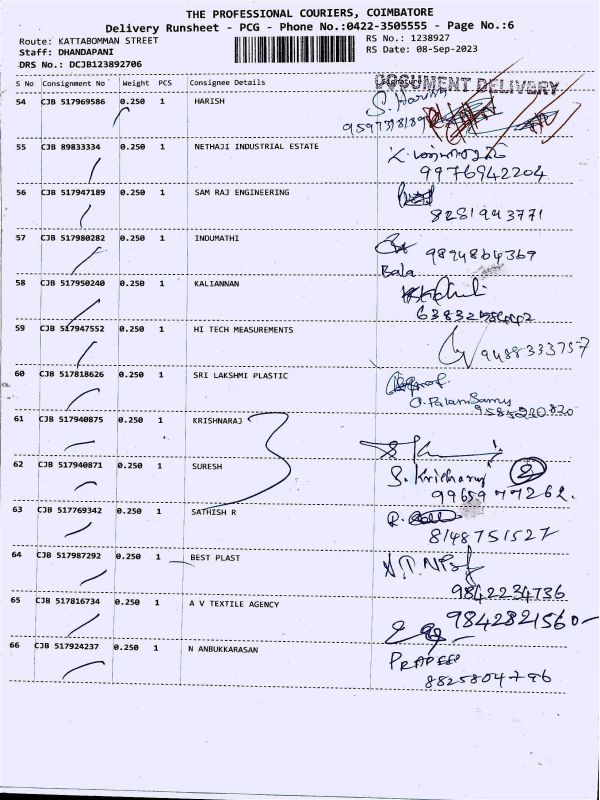 THE PROFESSIONAL COURIERS, COIMBATORE
Delivery Runsheet - PCG - Phone No.:0422-3505555 - Page No.:6
Route: KATTABOMMAN STREET
RS No.: 1238927
Staff: DHANDAPANI
RS Date: 08-Sep-2023
DRS No.: DCJB123892706
S No Consignment No Weight PCS Consignee Details Signature
DOCUMENT DELIVERY
54 CJB 517969586 0.250 1 HARISH
S. Harish
55 CJB 89833334 0.250 1 NETHAJI INDUSTRIAL ESTATE
9976942204
56 CJB 517947189 0.250 1 SAM RAJ ENGINEERING
8281993771
57 CJB 517980282 0.250 1 INDUMATHI
9894864369
Bala
58 CJB 517950240 0.250 1 KALIANNAN
59 CJB 517947552 0.250 1 HI TECH MEASUREMENTS
9488333757
60 CJB 517818626 0.250 1 SRI LAKSHMI PLASTIC
O. PalaniSamy
9585230820
61 CJB 517940875 0.250 1 KRISHNARAJ
62 CJB 517940871 0.250 1 SURESH
S. Krishnaraj 2
9965977262.
63 CJB 517769342 0.250 1 SATHISH R
R.
8148751527
64 CJB 517987292 0.250 1 BEST PLAST
9842234736
65 CJB 517816734 0.250 1 A V TEXTILE AGENCY
9842821560
66 CJB 517924237 0.250 1 N ANBUKKARASAN
PRADEEP
8825804796